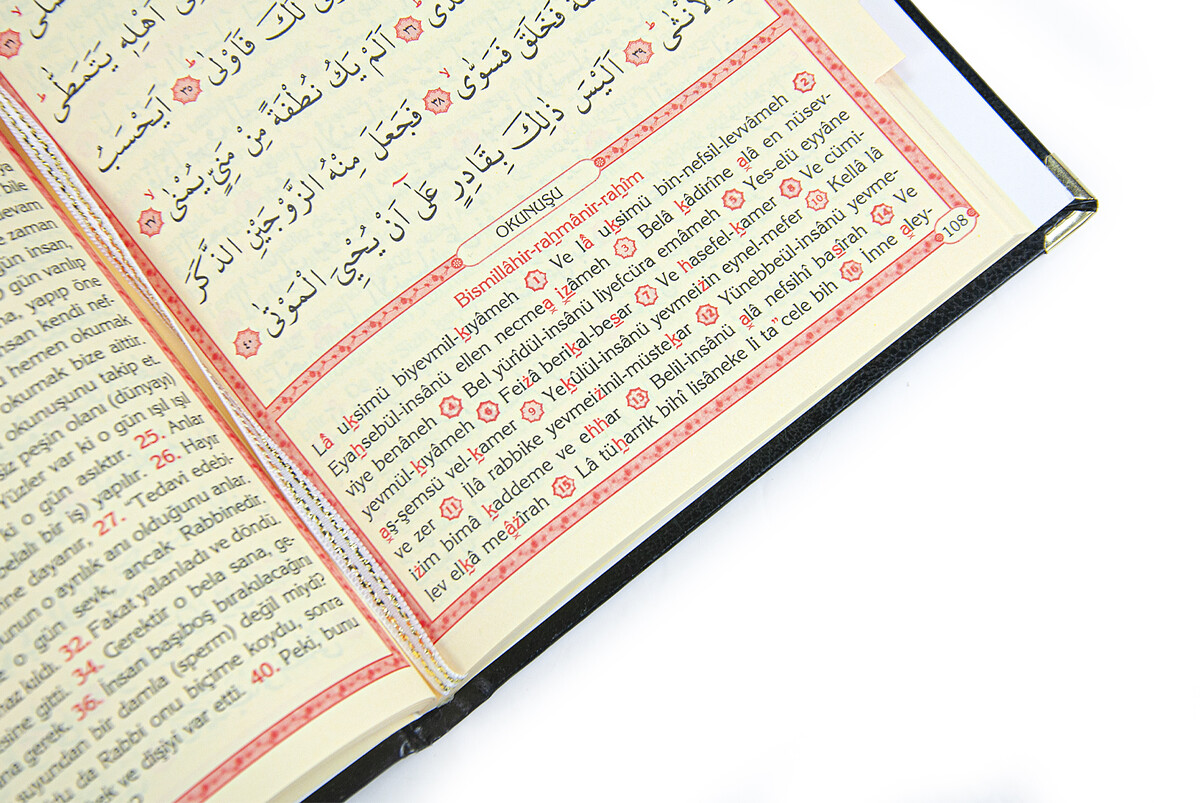 اَهْلِهِ يَتَمَطّٰى
لَكَ فَاَوْلٰى ٣٥ اَيَحْسَبُ
٣٦ اَلَمْ يَكُ نُطْفَةً مِنْ مَنِيٍّ يُمْنٰى ٣٧
فَخَلَقَ فَسَوّٰى ٣٨ فَجَعَلَ مِنْهُ الزَّوْجَيْنِ الذَّكَرَ
وَالْاُنْثٰى ٣٩ اَلَيْسَ ذٰلِكَ بِقَادِرٍ عَلٰٓى اَنْ يُحْيِيَ الْمَوْتٰى ٤٠
OKUNUŞU
Bismillâhir-rahmânir-rahîm
Lâ uksimü biyevmil-kıyâmeh 1 Ve lâ uksimü bin-nefsil-levvâmeh 2
Eyahsebül-insânü ellen necmea izâmeh 3 Belâ kâdirîne alâ en nüsev-
viye benâneh 4 Bel yürîdül-insânü liyefcüra emâmeh 5 Yes-elü eyyâne
yevmül-kıyâmeh 6 Feizâ berikal-besar 7 Ve hasefel-kamer 8 Ve cümi-
aş-şemsü vel-kamer 9 Yekülül-insânü yevmeizin eynel-mefer 10 Kellâ lâ
ve zer 11 İlâ rabbike yevmeizinil-müstekar 12 Yünebbeül-insânü yevme-
izim bimâ kaddeme ve ehhar 13 Belil-insânü alâ nefsihî basîrah 14 Ve
lev elkâ meâzîrah 15 Lâ tüharrik bihî lisâneke li ta"cele bih 16 İnne aley-
108
bile
devam
zaman
gün insan,
gün varılıp
yapıp öne
insan kendi nef-
hemen okumak
okumak bize aittir.
okunuşunu takip et.
siz peşin olanı (dünyayı)
Yüzler var ki o gün ışıl ışıl
ki o gün asıktır. 25. Anlar
belalı bir iş) yapılır. 26. Hayır
dayanır, 27. "Tedavi edebi-
o ayrılık anı olduğunu anlar.
o gün sevk, ancak Rabbinedir.
kıldı. 32. Fakat yalanladı ve döndü.
gitti. 34. Gerektir o bela sana, ge-
gerek. 36. İnsan başıboş bırakılacağını
suyundan bir damla (sperm) değil miydi?
da Rabbi onu biçime koydu, sonra
ve dişiyi var etti. 40. Peki, bunu